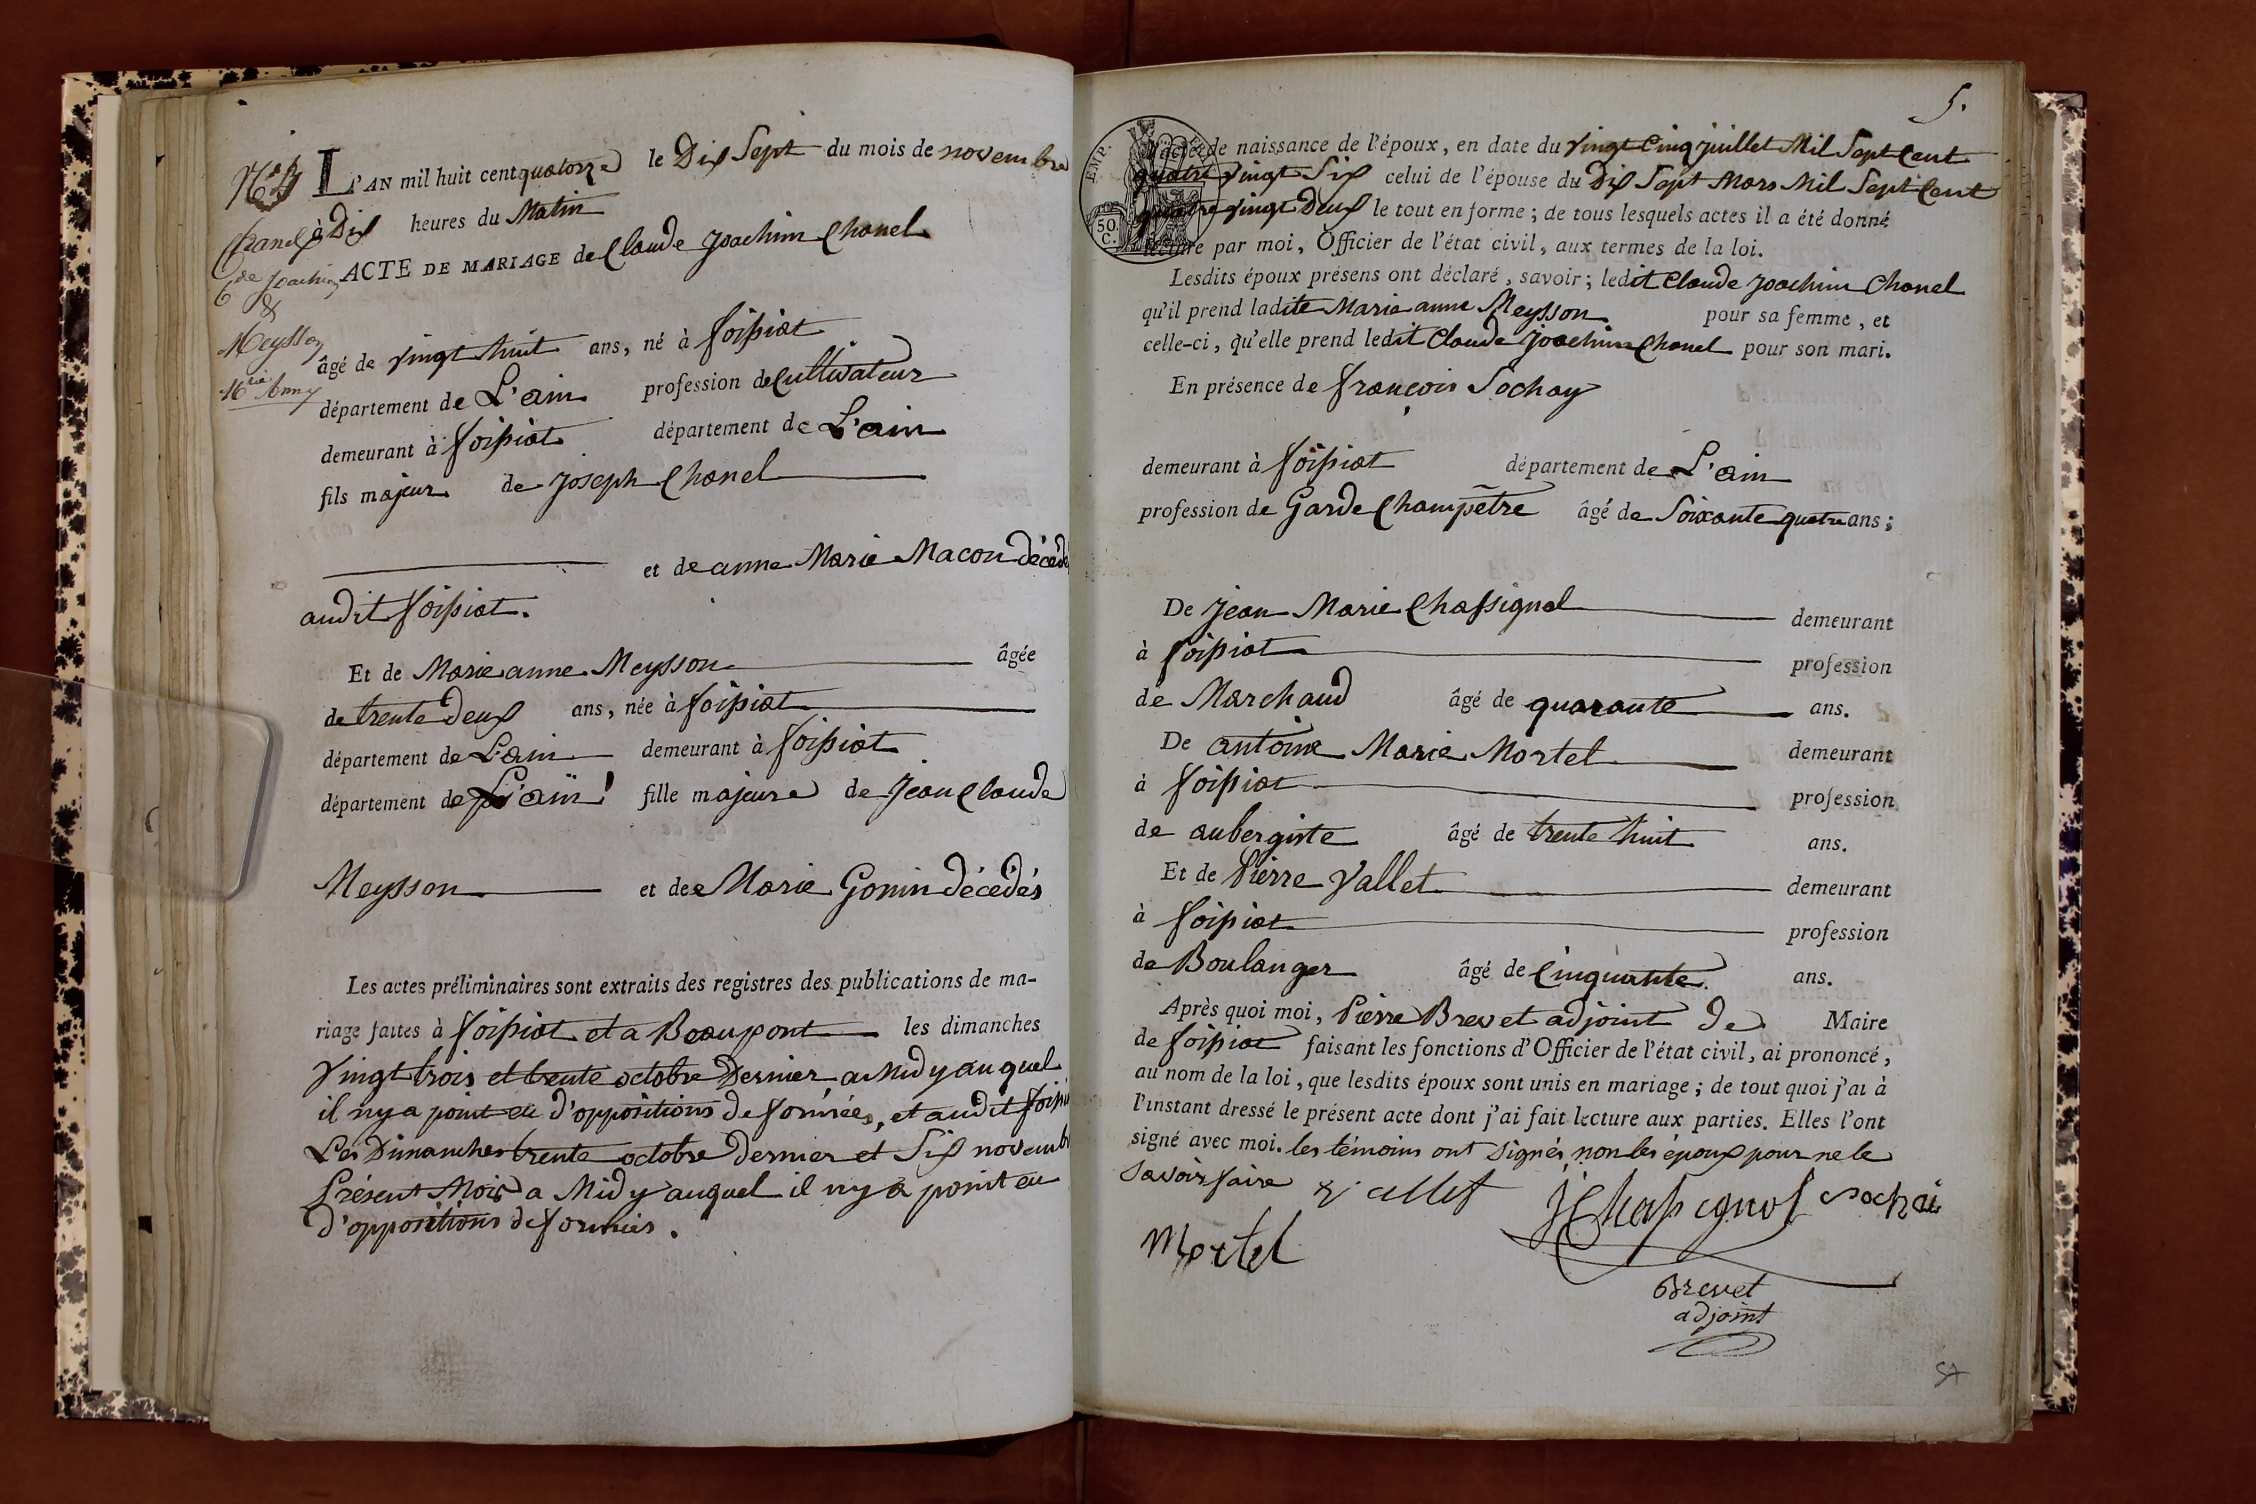 L'AN mil huit cent quatorze le Dix Sept du mois de novembre
à Dix heures du Matin
ACTE DE MARIAGE de Claude Joachim Chanel
Chanel
Cde Joachim
&
Meysson
Mrie Anne
âgé de vingt huit ans, né à foissiat
département de L'ain profession de Cultivateur
demeurant à foissiat département de L'ain
fils majeur de Joseph Chanel
et de anne Marie Macon décédé
audit foissiat.
Et de Marie anne Meysson âgée
de trente Deux ans, née à foissiat
département de L'ain demeurant à foissiat
département de L'ain fille majeure de Jean Claude
Meysson et de Marie Gonin décédés
Les actes préliminaires sont extraits des registres des publications de ma-
riage faites à foissiat et a Beaupont les dimanches
vingt trois et trente octobre Dernier a Midy auquel
il ny a point eu d'oppositions de formées, et audit foissi
Les Dimanches trente octobre dernier et Six novemb
Présent Mois a Midy auquel il ny a point eu
d'oppositions de formées.
5.
EMP.
50
C.
l'acte de naissance de l'époux, en date du vingt Cinq juillet Mil Sept Cent
quatre vingt Six celui de l'épouse du Dix Sept Mars Mil Sept Cent
quatre vingt Deux le tout en forme ; de tous lesquels actes il a été donné
lecture par moi, Officier de l'état civil, aux termes de la loi.
Lesdits époux présens ont déclaré, savoir ; ledit Claude Joachim Chanel
qu'il prend ladite Marie anne Meysson pour sa femme, et
celle-ci, qu'elle prend ledit Claude Joachim Chanel pour son mari.
En présence de françois Sochay
demeurant à foissiat département de L'ain
profession de Garde Champêtre âgé de Soixante quatre ans ;
De Jean Marie Chassignol demeurant
à foissiat profession
de Marchand âgé de quarante ans.
De antoine Marie Mortel demeurant
à foissiat profession
de aubergiste âgé de trente huit ans.
Et de Pierre Vallet demeurant
à foissiat profession
de Boulanger âgé de Cinquante ans.
Après quoi moi, Pierre Brevet adjoint de Maire
de foissiat faisant les fonctions d'Officier de l'état civil, ai prononcé,
au nom de la loi, que lesdits époux sont unis en mariage ; de tout quoi j'ai à
l'instant dressé le présent acte dont j'ai fait lecture aux parties. Elles l'ont
signé avec moi. les témoins ont signés non les époux pour ne le
savoir faire vallet J Chassignol sochai
Mortel
Brevet
adjoint